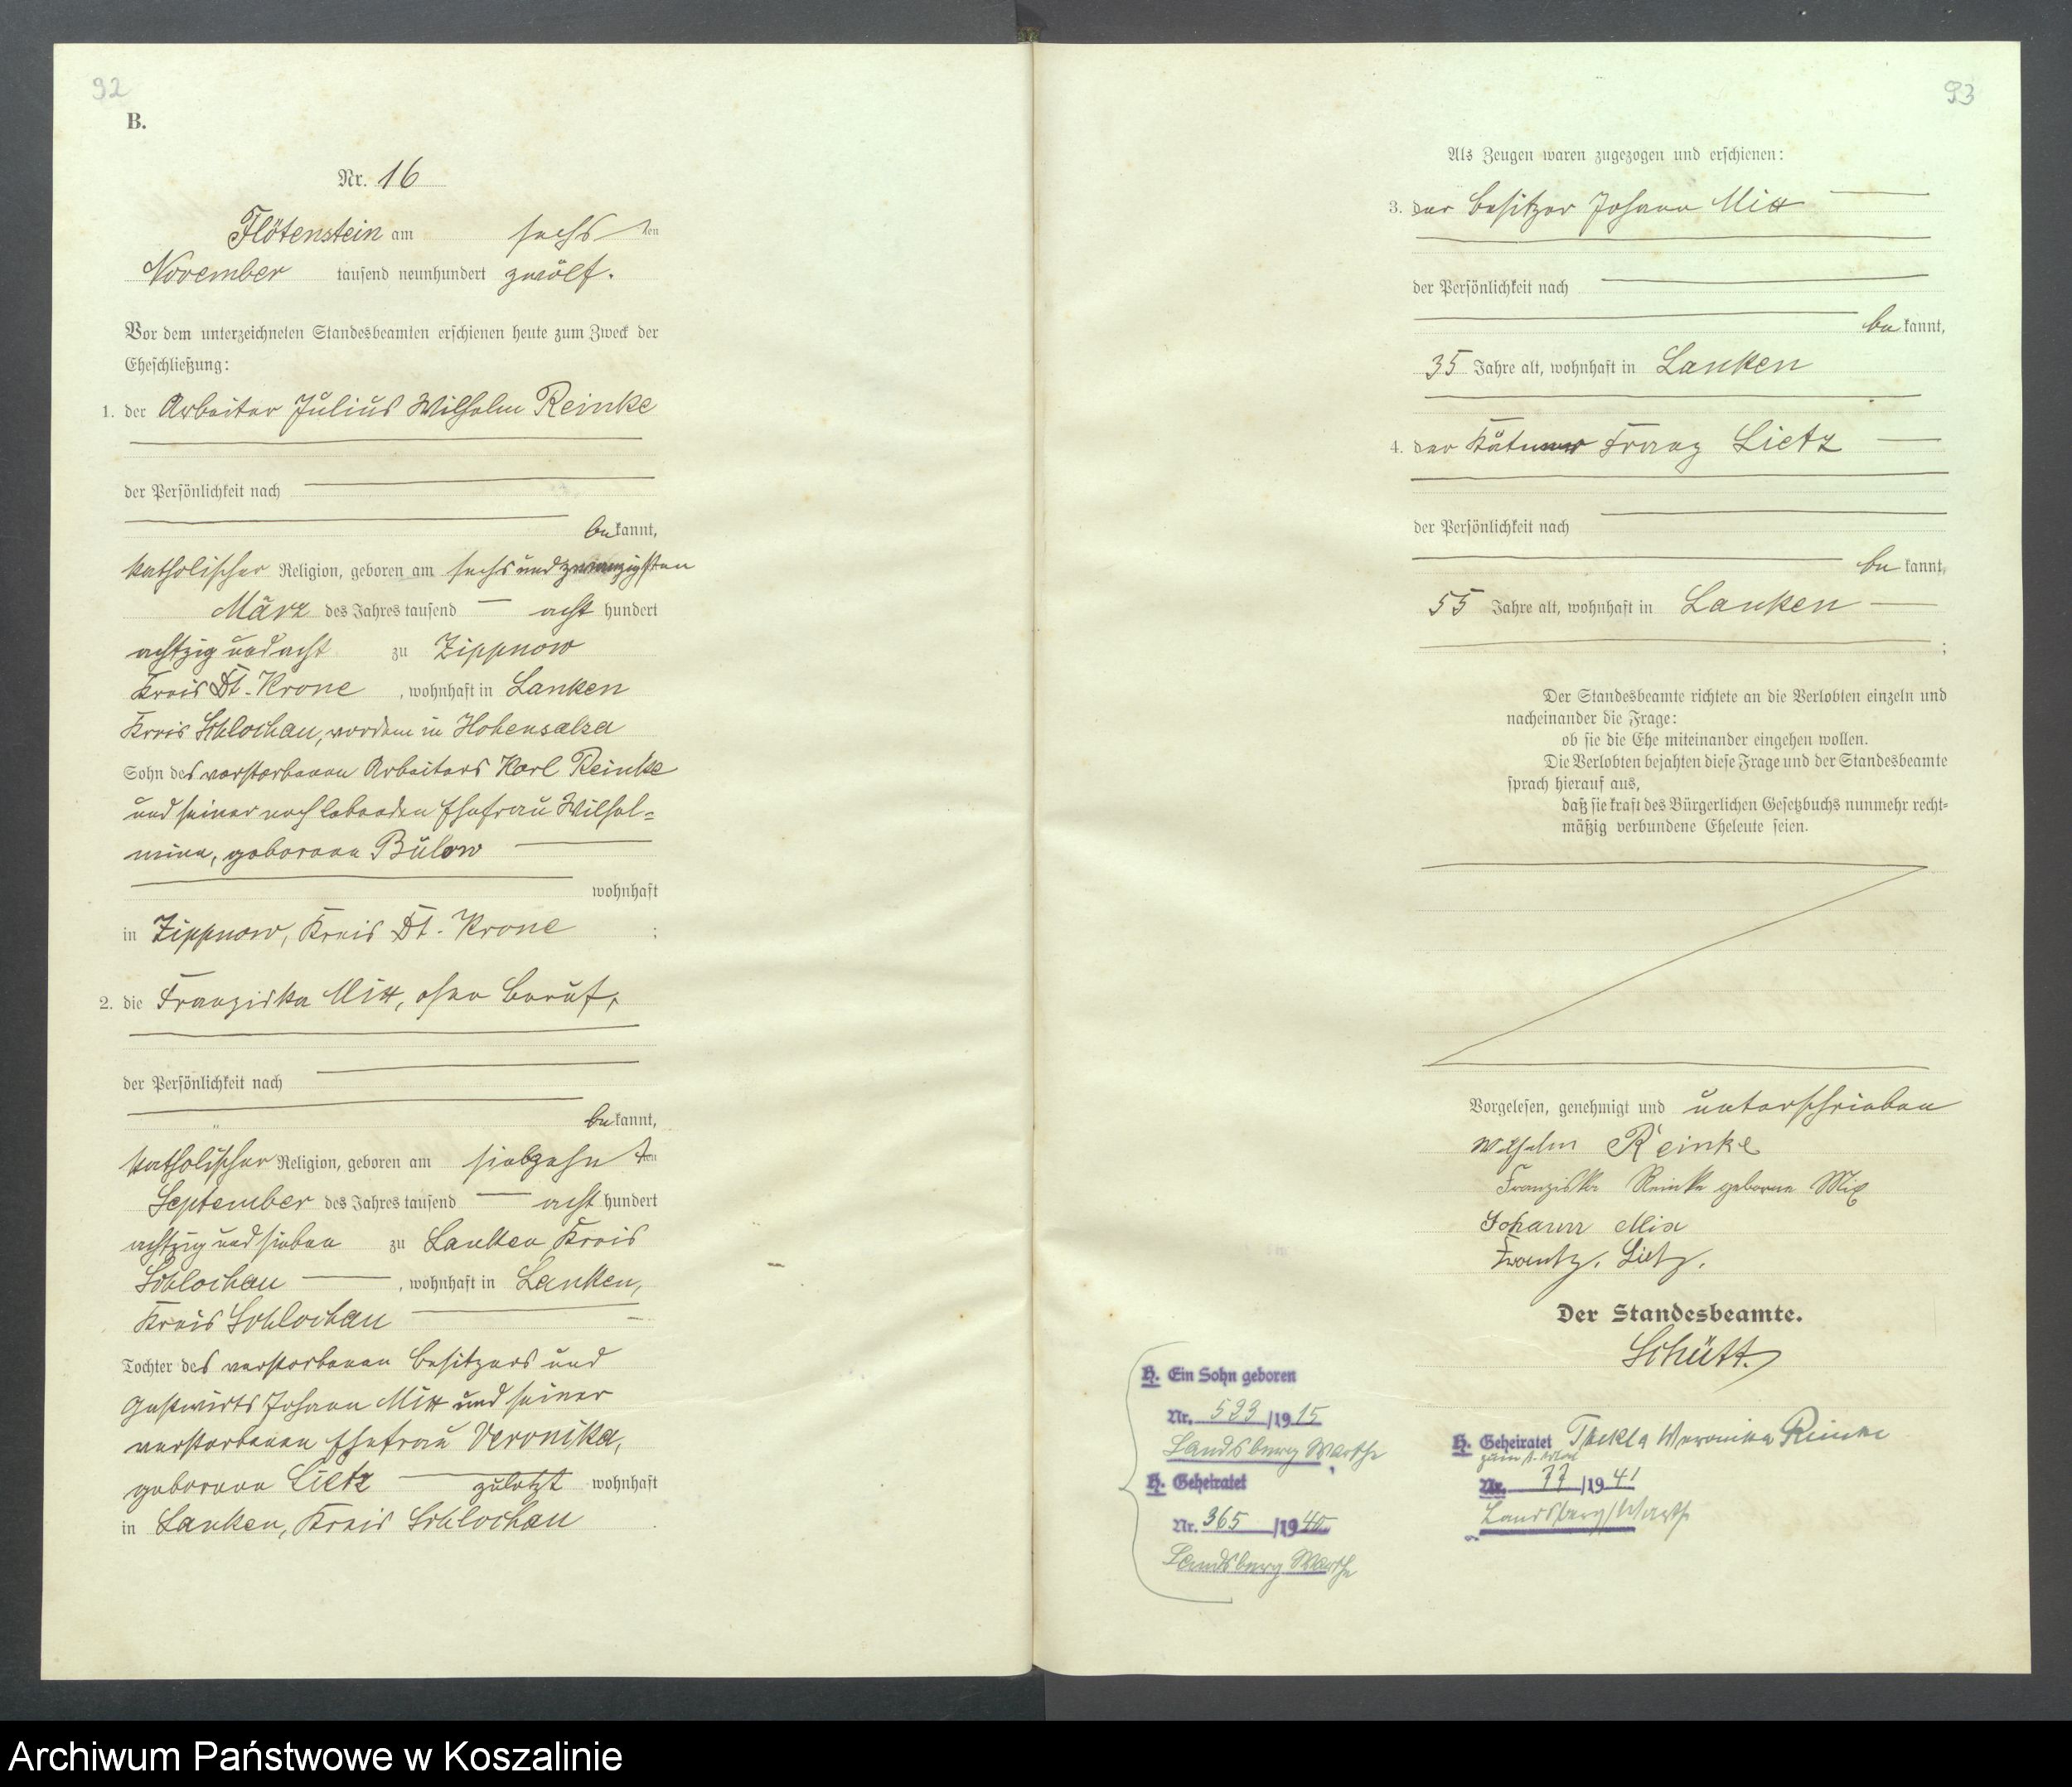 92
B.
Nr. 16
Flötenstein am sechsten
November tausend neunhundert zwölf.
Vor dem unterzeichneten Standesbeamten erschienen heute zum Zweck der
Eheschließung:
1. der Arbeiter Julius Wilhelm Reinke
der Persönlichkeit nach
bekannt,
katholischer Religion, geboren am sechsundzwanzigsten
März des Jahres tausend acht hundert
achtzig und acht zu Zippnow
Kreis Dt. Krone, wohnhaft in Lanken
Kreis Schlochau, vordem in Hohensalza
Sohn des verstorbenen Arbeiters Karl Reinke
und seiner noch lebenden Ehefrau Wilhel=
mine, geborenen Bülow
wohnhaft
in Zippnow, Kreis Dt. Krone;
2. die Franziska Mix, ohne Beruf,
der Persönlichkeit nach
bekannt,
katholischer Religion, geboren am siebzehnten
September des Jahres tausend acht hundert
achtzig und sieben zu Lanken Kreis
Schlochau, wohnhaft in Lanken,
Kreis Schlochau
Tochter des verstorbenen Besitzers und
Gastwirts Johann Mix und seiner
verstorbenen Ehefrau Veronika,
geborenen Lietz zuletzt wohnhaft
in Lanken, Kreis Schlochau.
93
Als Zeugen waren zugezogen und erschienen:
3. der Besitzer Johann Mix
der Persönlichkeit nach
bekannt,
35 Jahre alt, wohnhaft in Lanken
4. der Kätner Franz Lietz
der Persönlichkeit nach
bekannt,
55 Jahre alt, wohnhaft in Lanken
;
Der Standesbeamte richtete an die Verlobten einzeln und
nacheinander die Frage:
ob sie die Ehe miteinander eingehen wollen.
Die Verlobten bejahten diese Frage und der Standesbeamte
sprach hierauf aus,
daß sie kraft des Bürgerlichen Gesetzbuchs nunmehr recht=
mäßig verbundene Eheleute seien.
Vorgelesen, genehmigt und unterschrieben
Wilhelm Reinke
Franziska Reinke geborene Mix
Johann Mix
Frantz. Lietz.
Der Standesbeamte.
Schütt.
H. Ein Sohn geboren
Nr. 523/1915
Landsberg Warthe
H. Geheiratet
Nr. 365/1940
Landsberg Warthe
H. Geheiratet Thekla Weronika Reinke
Nr. 77/1941
Landsberg/Warthe
Archiwum Państwowe w Koszalinie